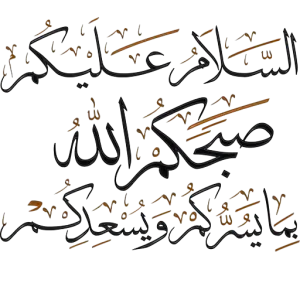 السلام عليكم
صبحكم الله
بما يسركم ويسعدكم